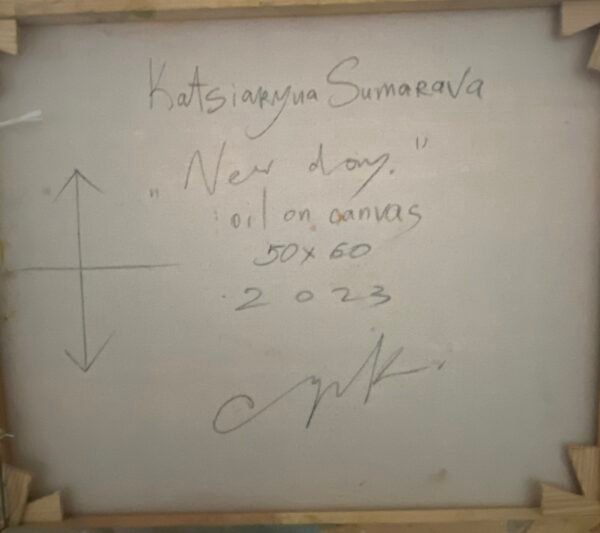 Katsiaryna Sumarava
„New day."
oil on canvas
50x60
2023